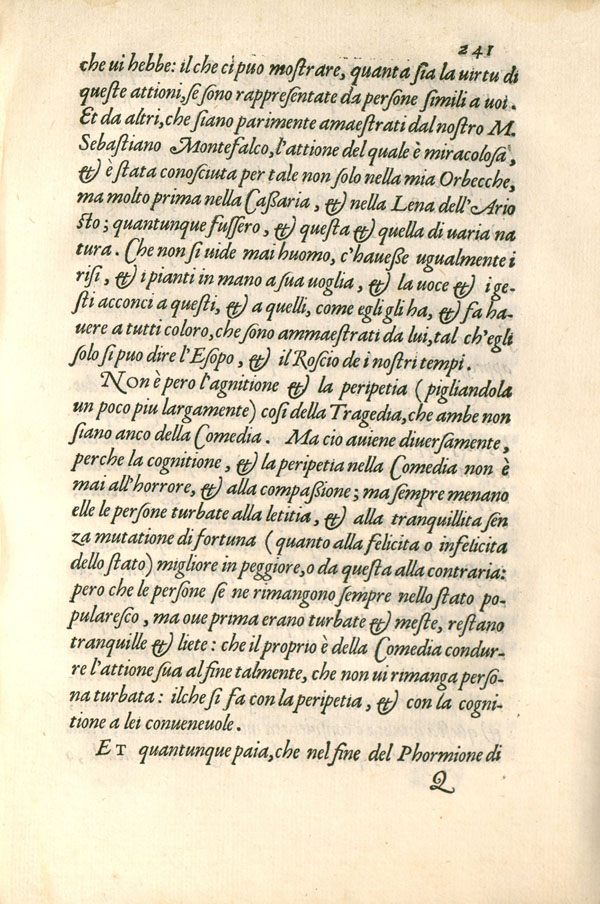 241
che ui hebbe: il che ci puo mostrare, quanta sia la uirtu di
queste attioni, se sono rappresentate da persone simili a uoi.
Et da altri, che siano parimente amaestrati dal nostro M.
Sebastiano Montefalco, l'attione del quale è miracolosa,
& è stata conosciuta per tale non solo nella mia Orbecche,
ma molto prima nella Caßaria, & nella Lena dell'Ario
sto; quantunque fussero, & questa & quella di uaria na
tura. Che non si uide mai huomo, c'haueße ugualmente i
risi, & i pianti in mano a sua uoglia, & la uoce & i ge-
sti acconci a questi, & a quelli, come egli gli ha, & fa ha-
uere a tutti coloro, che sono ammaestrati da lui, tal ch'egli
solo si puo dire l'Esopo, & il Roscio de i nostri tempi.
Non è pero l'agnitione & la peripetia (pigliandola
un poco piu largamente) cosi della Tragedia, che ambe non
siano anco della Comedia. Ma cio auiene diuersamente,
perche la cognitione, & la peripetia nella Comedia non è
mai all'horrore, & alla compaßione; ma sempre menano
elle le persone turbate alla letitia, & alla tranquillita sen
za mutatione di fortuna (quanto alla felicita o infelicita
dello stato) migliore in peggiore, o da questa alla contraria:
pero che le persone se ne rimangono sempre nello stato po-
pularesco, ma oue prima erano turbate & meste, restano
tranquille & liete: che il proprio è della Comedia condur-
re l'attione sua al fine talmente, che non ui rimanga perso-
na turbata: ilche si fa con la peripetia, & con la cogni-
tione a lei conueneuole.
ET quantunque paia, che nel fine del Phormione di
Q